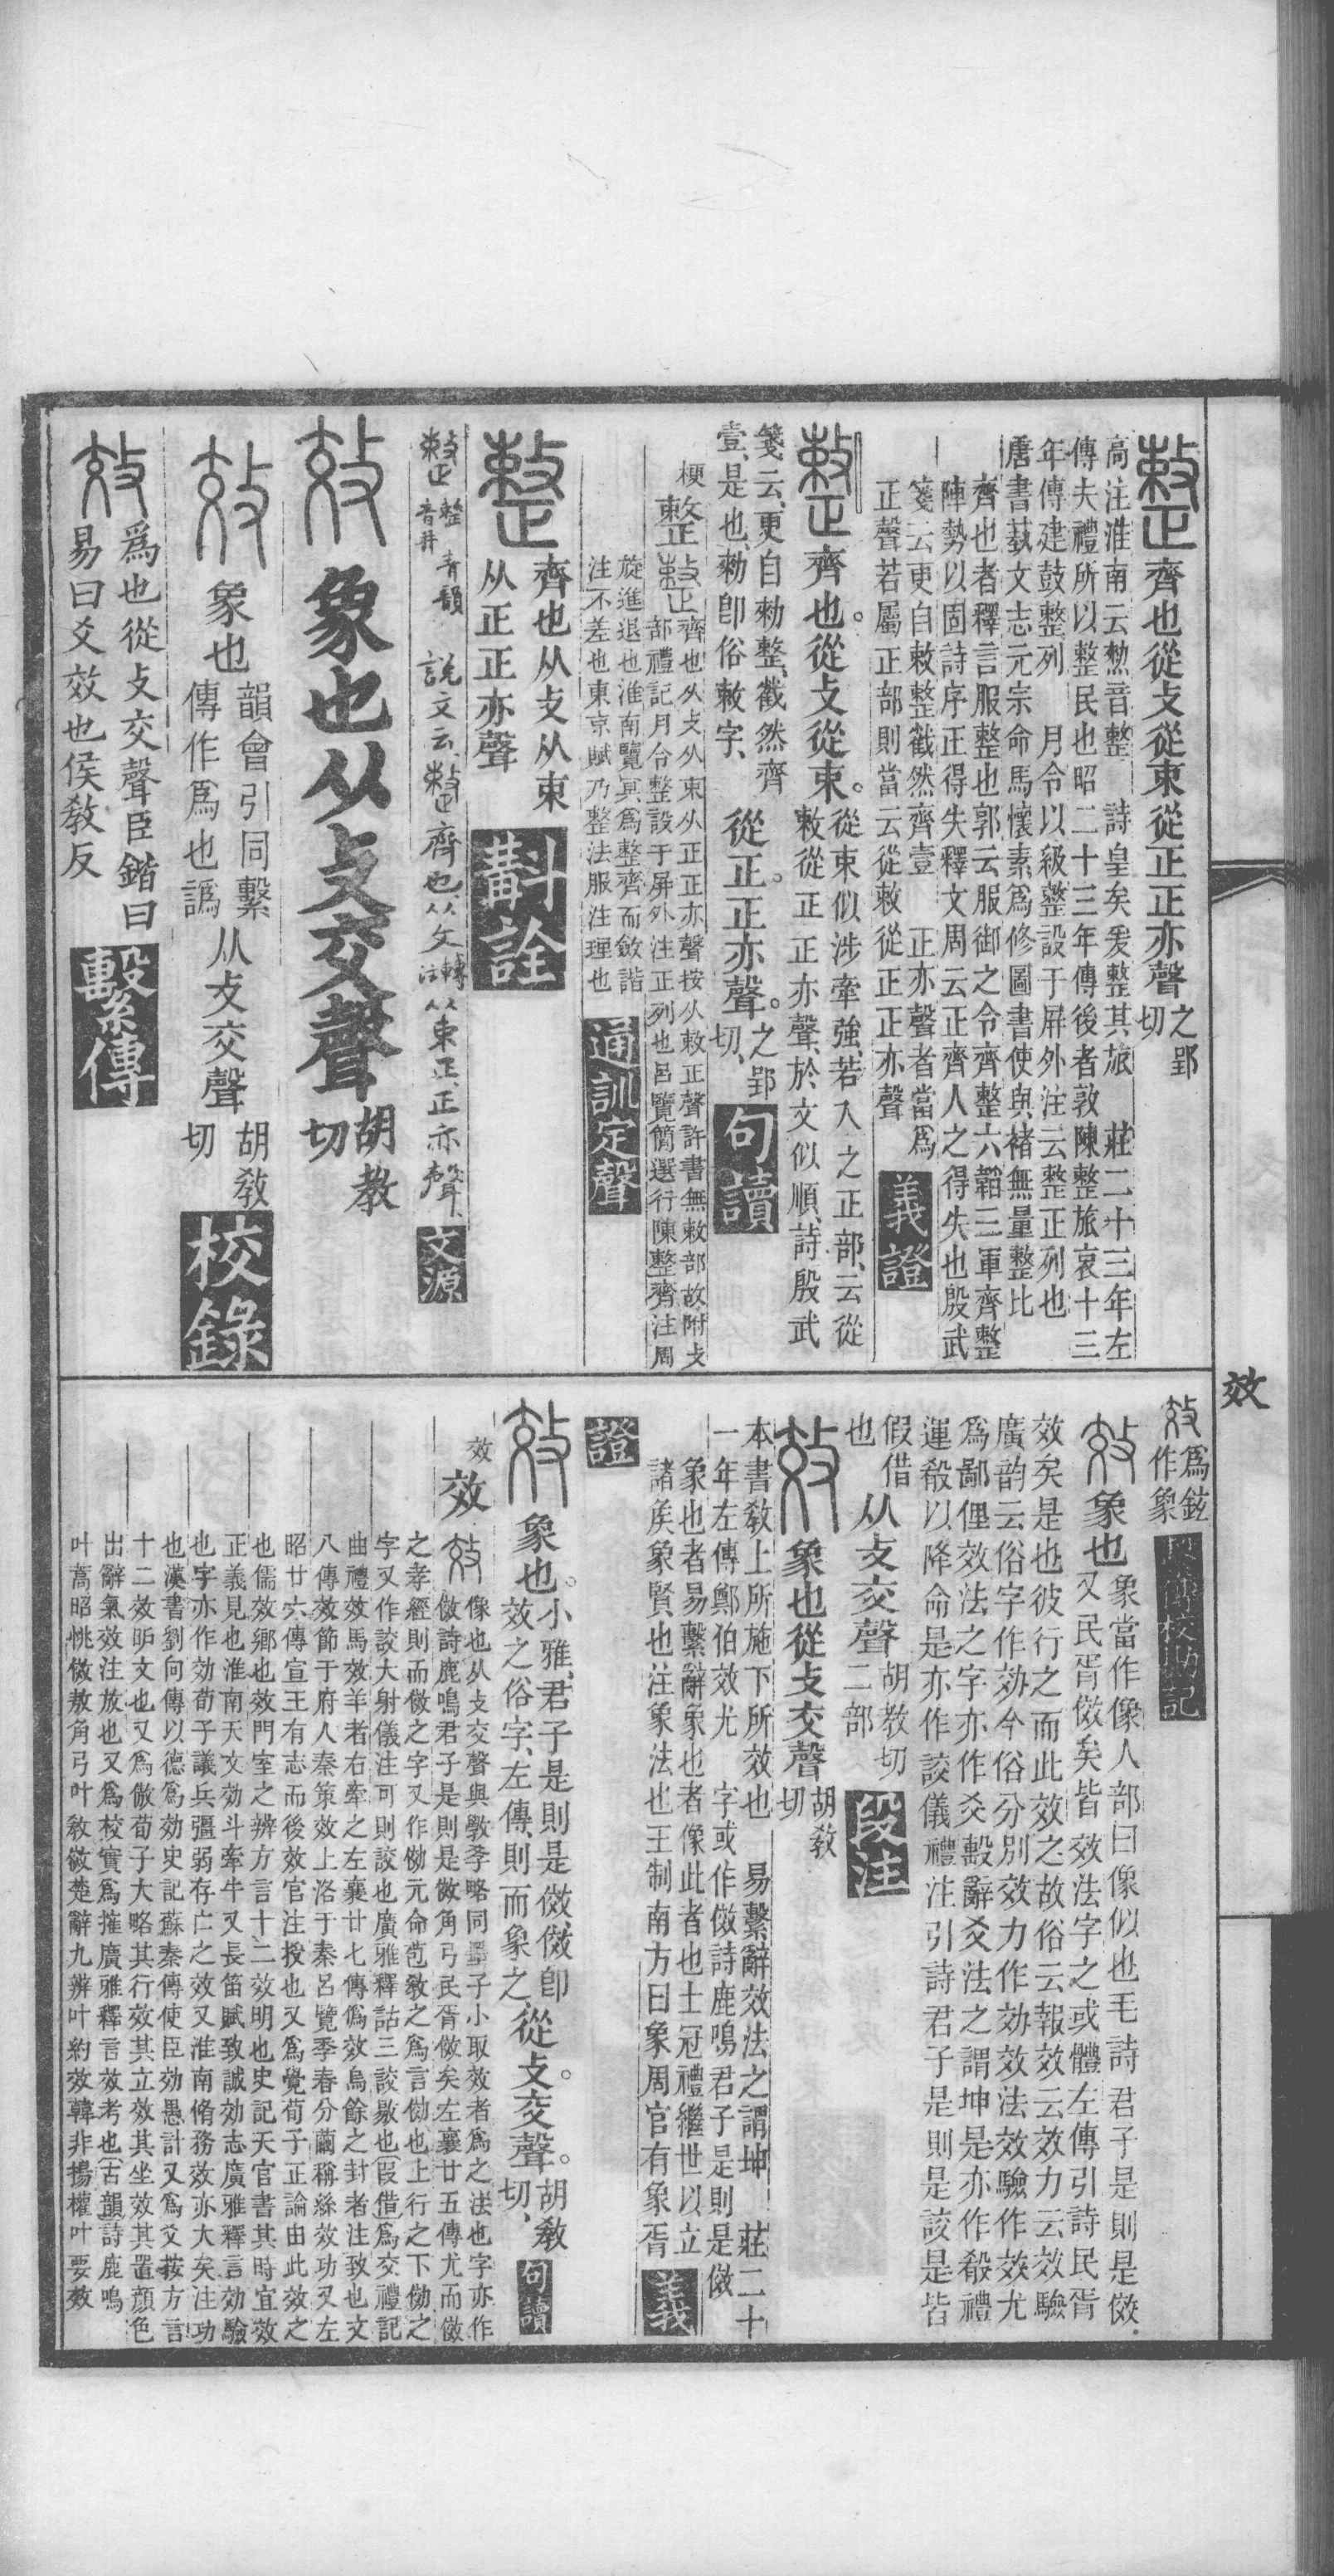 效
整齊也從攴從束從正正亦聲之郢切
高注淮南云憗音整 詩皇矣爰整其旅 莊二十三年左
傳夫禮所以整民也昭二十三年傳後者敦陳整旅哀十三
年傳建鼓整列 月令以級整設于屏外注云整正列也
唐書蓺文志元宗命馬懷素爲修圖書使與褚無量整比
齊也者釋言服整也郭云服御之令齊整六韜三軍齊整
陣勢以固詩序正得失釋文周云正齊人之得失也殷武
箋云更自敕整截然齊壹 正亦聲者當爲
正聲若屬正部則當云從敕從正正亦聲 義證
整齊也。從攴從束。從束似涉牽強、若入之正部、云從
敕從正正亦聲、於文似順、詩殷武
箋云、更自勑整、截然齊
壹、是也、勑卽俗敕字、從正。正亦聲。之郢切、句讀
梗
整 整齊也从攴从束从正正亦聲按从敕正聲許書無敕部故附攴
部禮記月令整設于屏外注正列也呂覽簡選行陳整齊注周
旋進退也淮南覽冥爲整齊而斂諧
注不差也東京賦乃整法服注理也 通訓定聲
整齊也从攴从束
从正正亦聲 斠詮
整 整音井青韻 說文云、整齊也、从攵轉注从束正、正亦聲、 文源
效象也从攴交聲胡教切
效象也韻會引同繫傳作爲也譌从攴交聲胡教切 校錄
效爲也從攴交聲臣鍇曰
易曰爻效也侯教反 繫傳
效爲鉉作象 𣪠傳校勘記
效象也象當作像人部曰像似也毛詩君子是則是傚.
又民胥傚矣皆效法字之或體左傳引詩民胥
效矣是也彼行之而此效之故俗云報效云效力云效驗
廣韵云俗字作効今俗分別效力作効效法效驗作效尤
爲鄙俚效法之字亦作爻毄辭爻法之謂坤是亦作殽禮
運殽以降命是亦作詨儀禮注引詩君子是則是詨是皆
假借也从攴交聲胡教切二部 段注
效象也從攴交聲胡教切
本書教上所施下所效也 易繫辭效法之謂坤 莊二十
一年左傳鄭伯效尤 字或作傚詩鹿鳴君子是則是傚
象也者易繫辭象也者像此者也士冠禮繼世以立
諸矦象賢也注象法也王制南方曰象周官有象胥 義
證
效象也。小雅、君子是則是傚、傚卽
效之俗字、左傳、則而象之、從攴。交聲。胡教切、句讀
效
效 效像也从攴交聲與斅孝略同墨子小取效者爲之法也字亦作
傚詩鹿鳴君子是則是傚角弓民胥傚矣左襄廿五傳尤而傚
之孝經則而傚之字又作㑾元命苞教之爲言㑾也上行之下㑾之
字又作詨大射儀注可則詨也廣雅釋詁三詨㪣也叚借爲交禮記
曲禮效馬效羊者右牽之左襄廿七傳僞效烏餘之封者注致也文
八傳效節于府人秦策效上洛于秦呂覽季春分繭稱絲效功又左
昭廿六傳宣王有志而後效官注授也又爲覺荀子正論由此效之
也儒效鄉也效門室之辨方言十二效明也史記天官書其時宜效
正義見也淮南天文効斗牽牛又長笛賦致誠効志廣雅釋言効驗
也字亦作効荀子議兵彊弱存亡之效又淮南脩務效亦大矣注功
也漢書劉向傳以德爲効史記蘇秦傳使臣効愚計又爲爻按方言
十二效昈文也又爲傲荀子大略其行效其立效其坐效其置顏色
出辭氣效注放也又爲校實爲搉廣雅釋言效考也古韻詩鹿鳴
叶蒿昭恌傚敖角弓叶教傚楚辭九辨叶約效韓非揚權叶要效